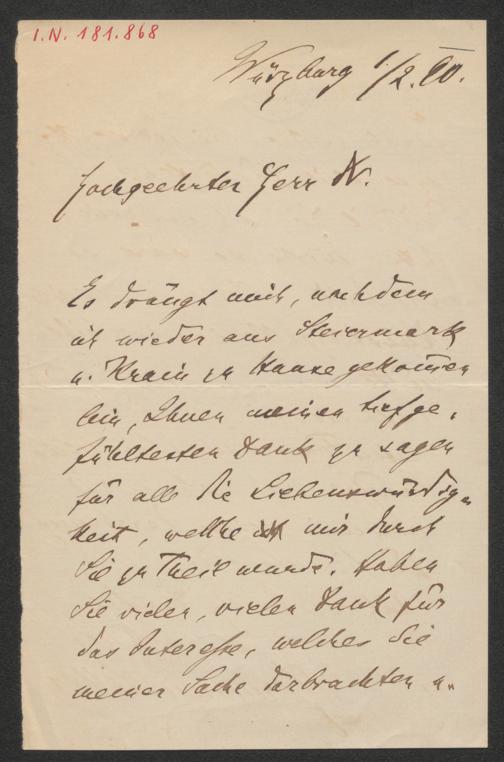 I.N. 181.868
Würzburg 1/2.90.
Hochgeehrter Herr Dr.
Es drängt mich, nachdem
ich wieder aus Steiermark
u. Krain zu Hause gekomen
bin, Ihnen meinen tiefge-
fühltesten Dank zu sagen
für alle die Liebenswürdig-
keit, welche mir durch
Sie zu Theil wurde. Haben
Sie vielen, vielen Dank für
das Interesse, welches Sie
meiner Sache darbrachten u.